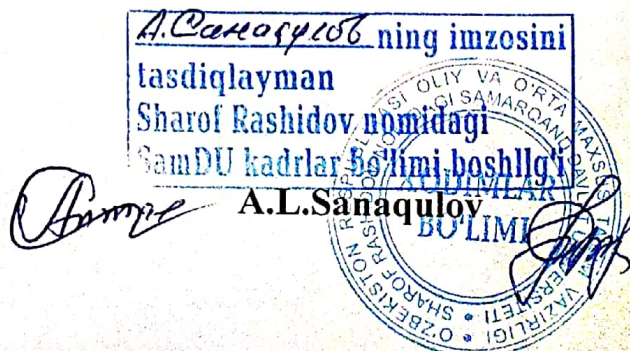 А.Санақулов ning imzosini
tasdiqlayman
Sharof Rashidov nomidagi
SamDU kadrlar bo'limi boshllg'i
A.L.Sanaqulov
XODIMLAR
BO'LIMI
O'ZBEKISTON RESPUBLIKASI OLIY VA O'RTA MAXSUS TA'LIM VAZIRLIGI
SHAROF RASHIDOV NOMIDAGI SAMARQAND DAVLAT UNIVERSITETI